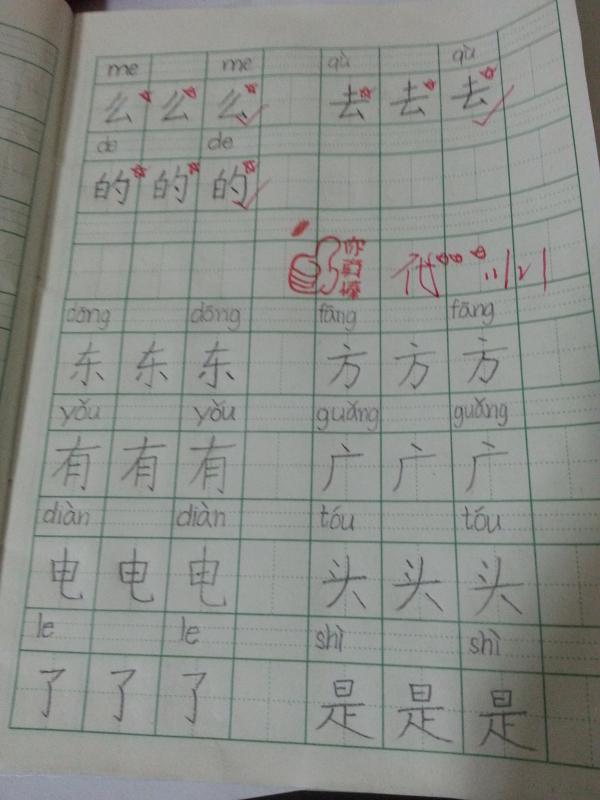 me me qù qù
么 么 么 去 去 去
de de
的 的 的
你真棒 11/21
dōng dōng fāng fāng
东 东 东 方 方 方
yǒu yǒu guǎng guǎng
有 有 有 广 广 广
diàn diàn tóu tóu
电 电 电 头 头 头
le le shì shì
了 了 了 是 是 是